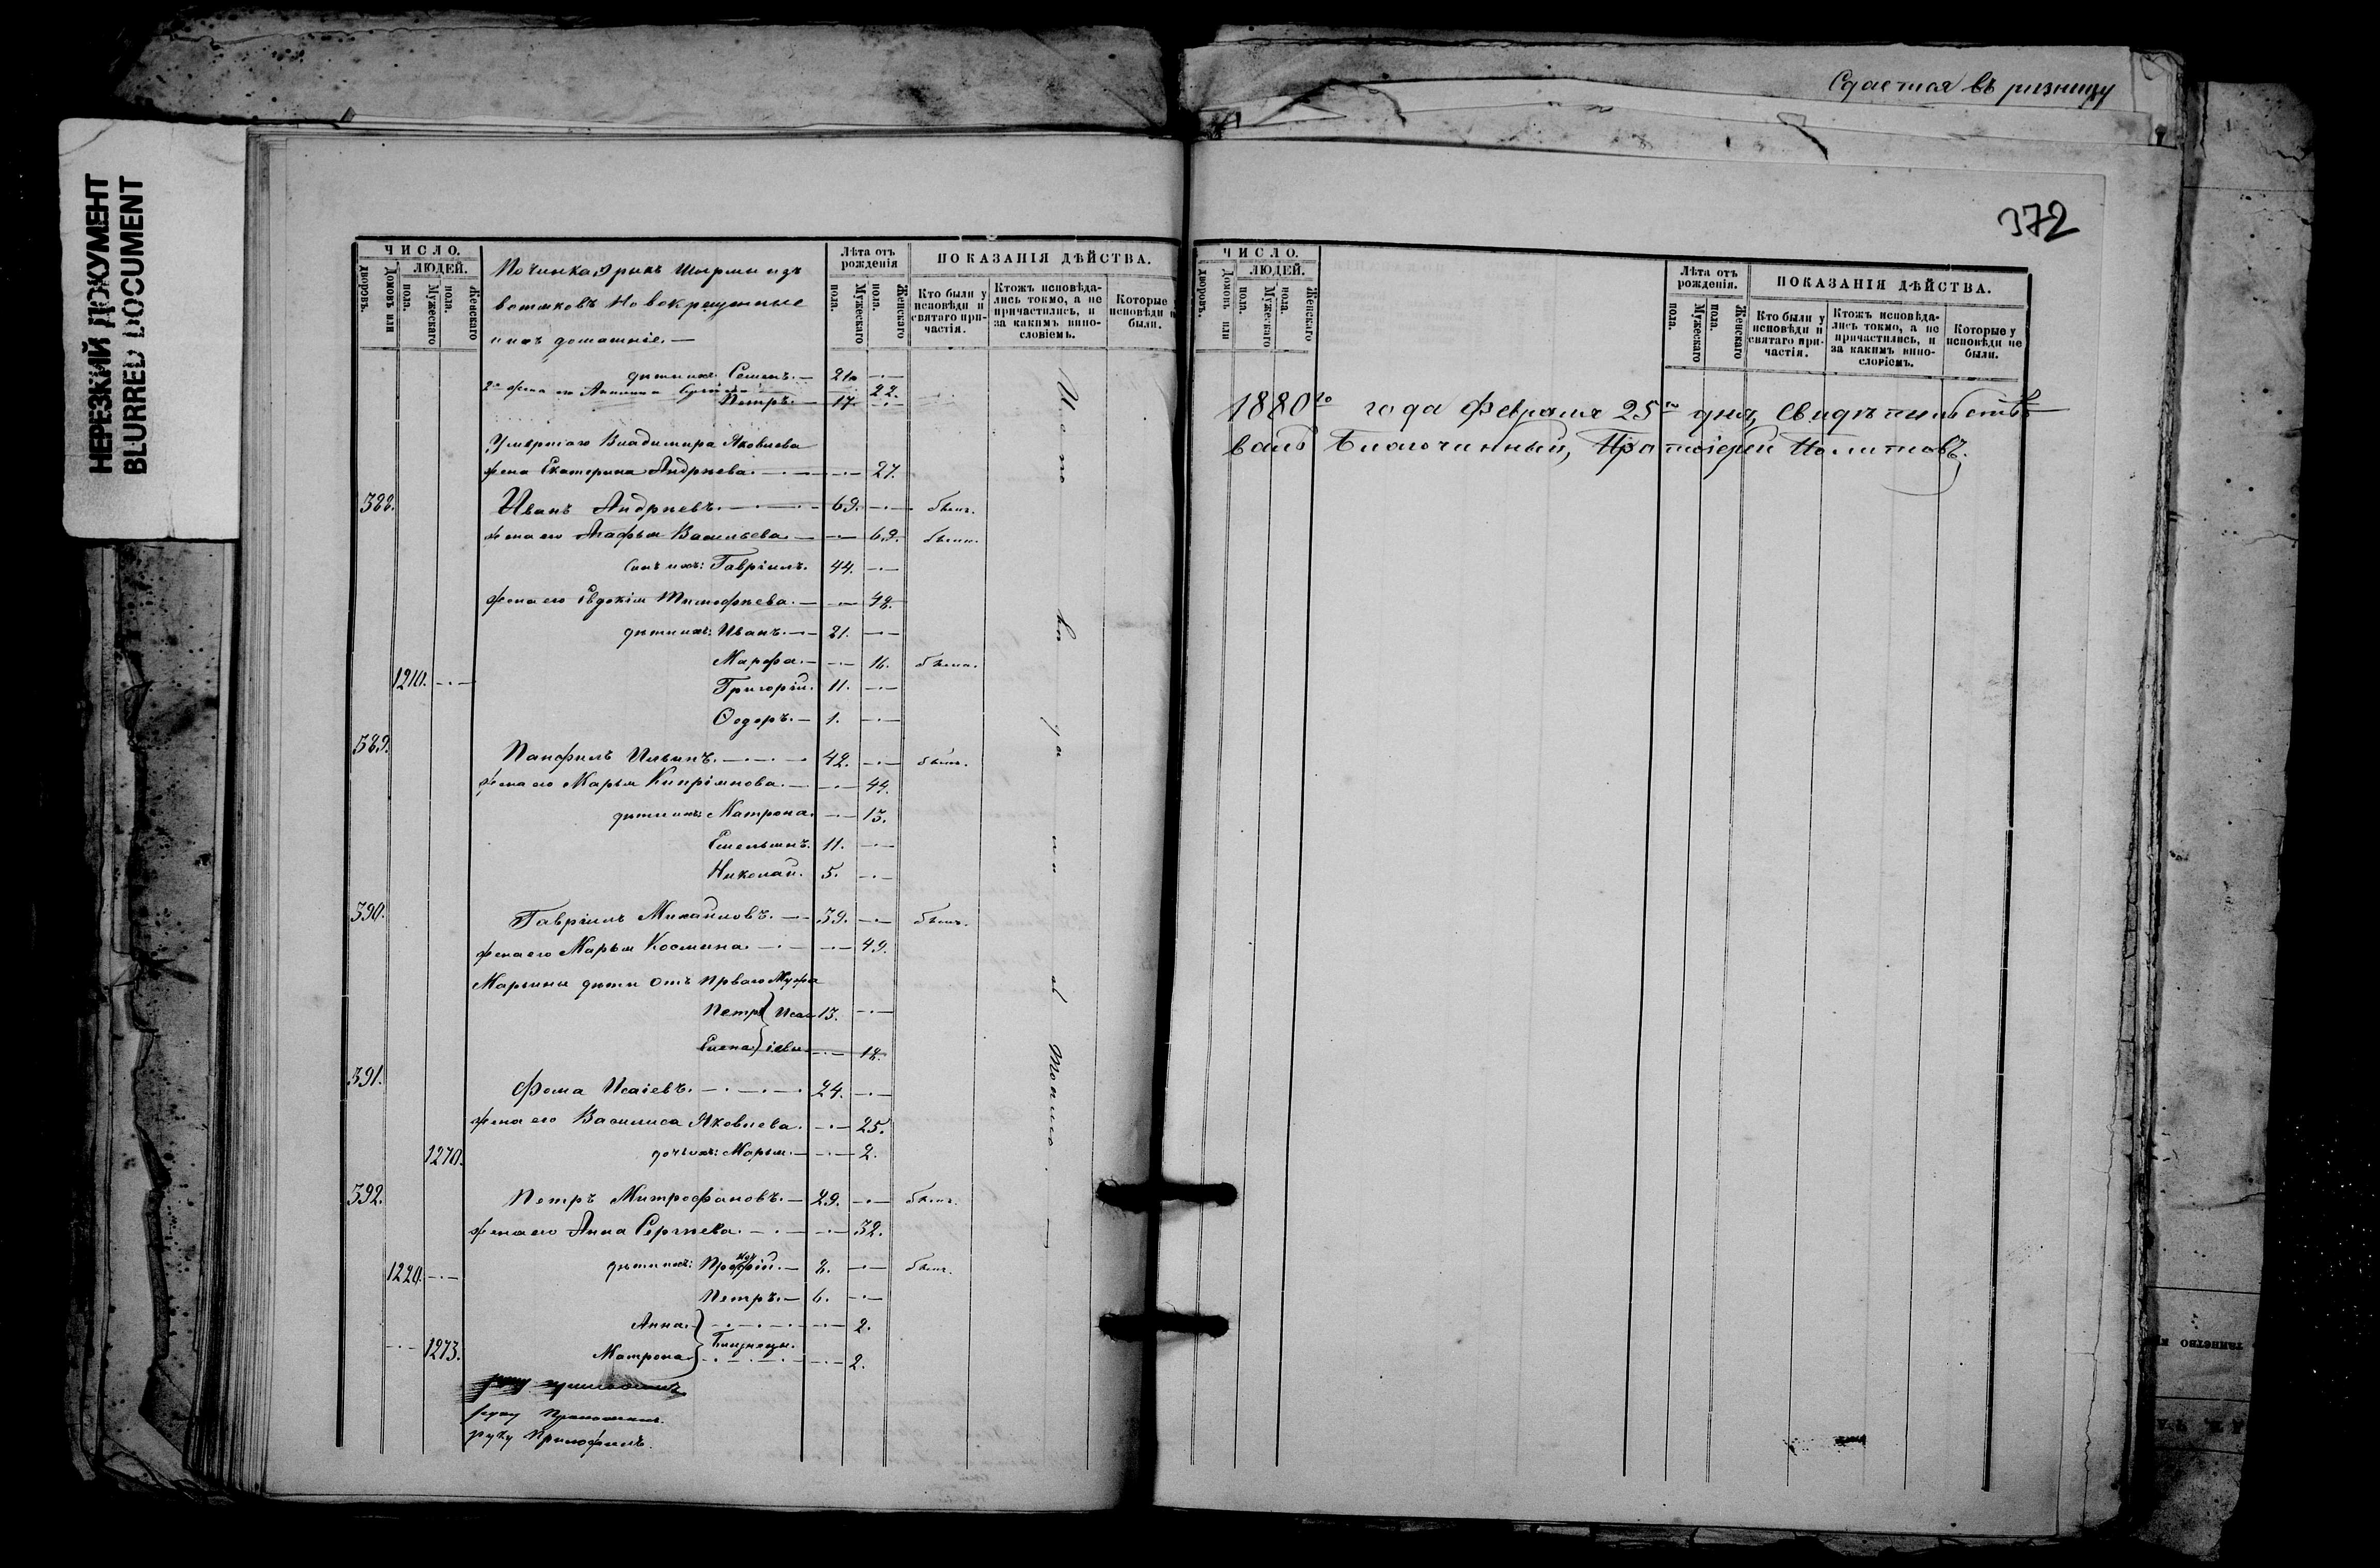 НЕРЕЗКИЙ ДОКУМЕНТ
BLURRED DOCUMENT
ЧИСЛО.
Дворовъ.
Домовъ или
ЛЮДЕЙ.
Мужескаго пола.
Женскаго пола.
Починка
вотяковъ Новокрещенные
ихъ домашніе. —
Лѣта отъ рожденія
Мужескаго пола.
Женскаго пола.
ПОКАЗАНІЯ ДѢЙСТВА.
Кто были у исповѣди и святаго причастія.
Ктожъ исповѣдались токмо, а не причастились, и за какимъ винословіемъ.
Которые исповѣди были.
дѣти ихъ: Семенъ. —
22.
Петръ. — 17.
Умершаго Владимира Яковлева
жена Екатерина Андреева. — 27.
388. Иванъ Андреевъ. — 69. былъ.
жена его Агафья Васильева — 69. была.
Сынъ ихъ: Гавріилъ. 44.
жена его Евдокія Тимофеева. — 48.
дѣти ихъ: Иванъ. — 21.
Марфа. — 16. была.
1210. Григорій. 11.
Ѳедоръ. — 1.
389. Панфилъ Ильинъ. — 42. былъ.
жена его Марья Кипріянова. — 44.
дѣти ихъ: Матрона. — 13.
Емельянъ. 11.
Николай. 5.
390. Гавріилъ Михайловъ. — 39. былъ.
жена его Марья Космина — 49.
Марьины дѣти отъ перваго Мужа
Петръ 13.
Елена 18.
391. Фома Исаіевъ. — 24.
жена его Василиса Яковлева. — 25.
1270. дочь ихъ: Марья. — 2.
392. Петръ Митрофановъ. — 29. былъ.
жена его Анна Сергѣева. — 32.
1220. дѣти ихъ: 8. былъ.
Петръ. — 6.
Анна. 2.
Близнецы.
1273. Матрона 2.
руку Приложилъ.
руку Приложилъ.
Сдается въ ризницу
372
ЧИСЛО.
Дворовъ.
Домовъ или
ЛЮДЕЙ.
Мужескаго пола.
Женскаго пола.
Лѣта отъ рожденія.
Мужескаго пола.
Женскаго пола.
ПОКАЗАНІЯ ДѢЙСТВА.
Кто были у исповѣди и святаго причастія.
Ктожъ исповѣдались токмо, а не причастились, и за какимъ винословіемъ.
Которые у исповѣди не были.
1880го года Февраля 25го дня, свидѣтельство
валъ Благочинный, Протоіерей